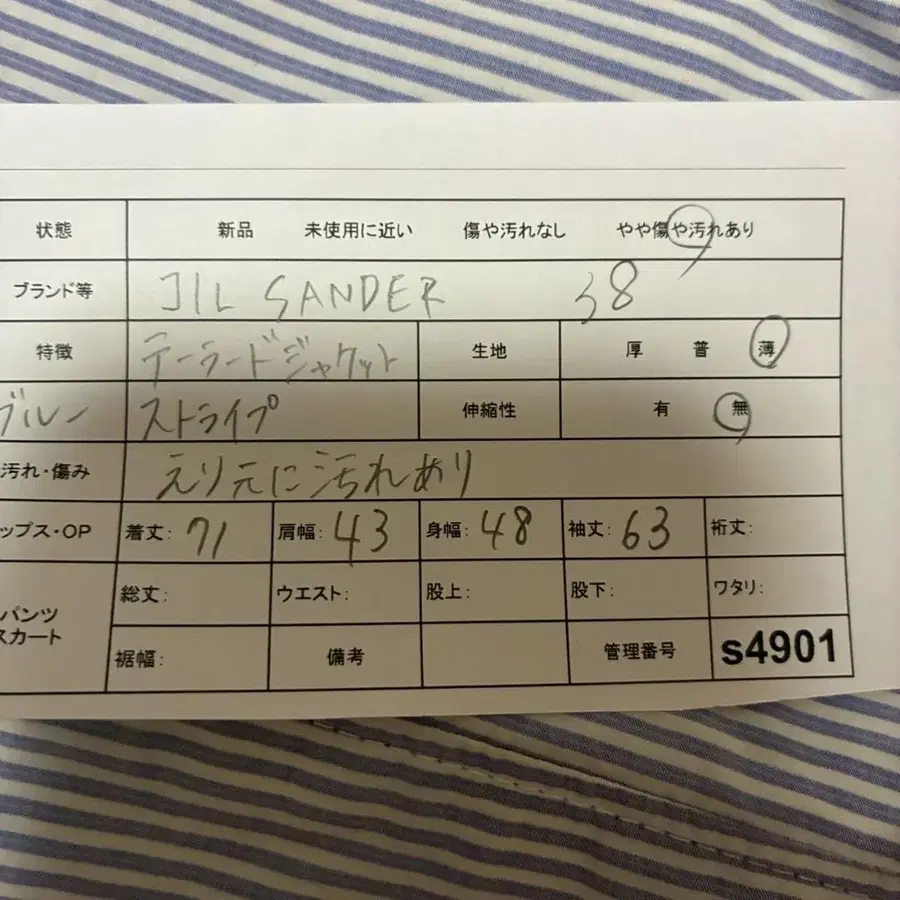 状態 新品 未使用に近い 傷や汚れなし やや傷や汚れあり
ブランド等 JIL SANDER 38
特徴 テーラードジャケット 生地 厚 普 薄
ブルー ストライプ 伸縮性 有 無
汚れ・傷み えり元に汚れあり
ップス・OP 着丈: 71 肩幅: 43 身幅: 48 袖丈: 63 裄丈:
パンツ
スカート 総丈: ウエスト: 股上: 股下: ワタリ:
裾幅: 備考 管理番号 s4901